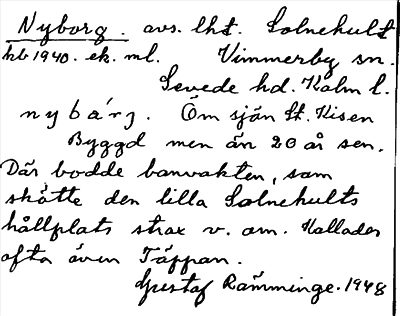 Nyborg. avs. lht. Solnehult
kb 1940. ek. ml. Vimmerby sn.
Sevede hd. Kalm l.
nybárj. Öm sjön St. Kisen
Byggd men än 20 år sen.
Där bodde banvakten, som
skötte den lilla Solnehults
hållplats strax v. om. Kallades
ofta även Täppan.
Gustaf Ramminge. 1948